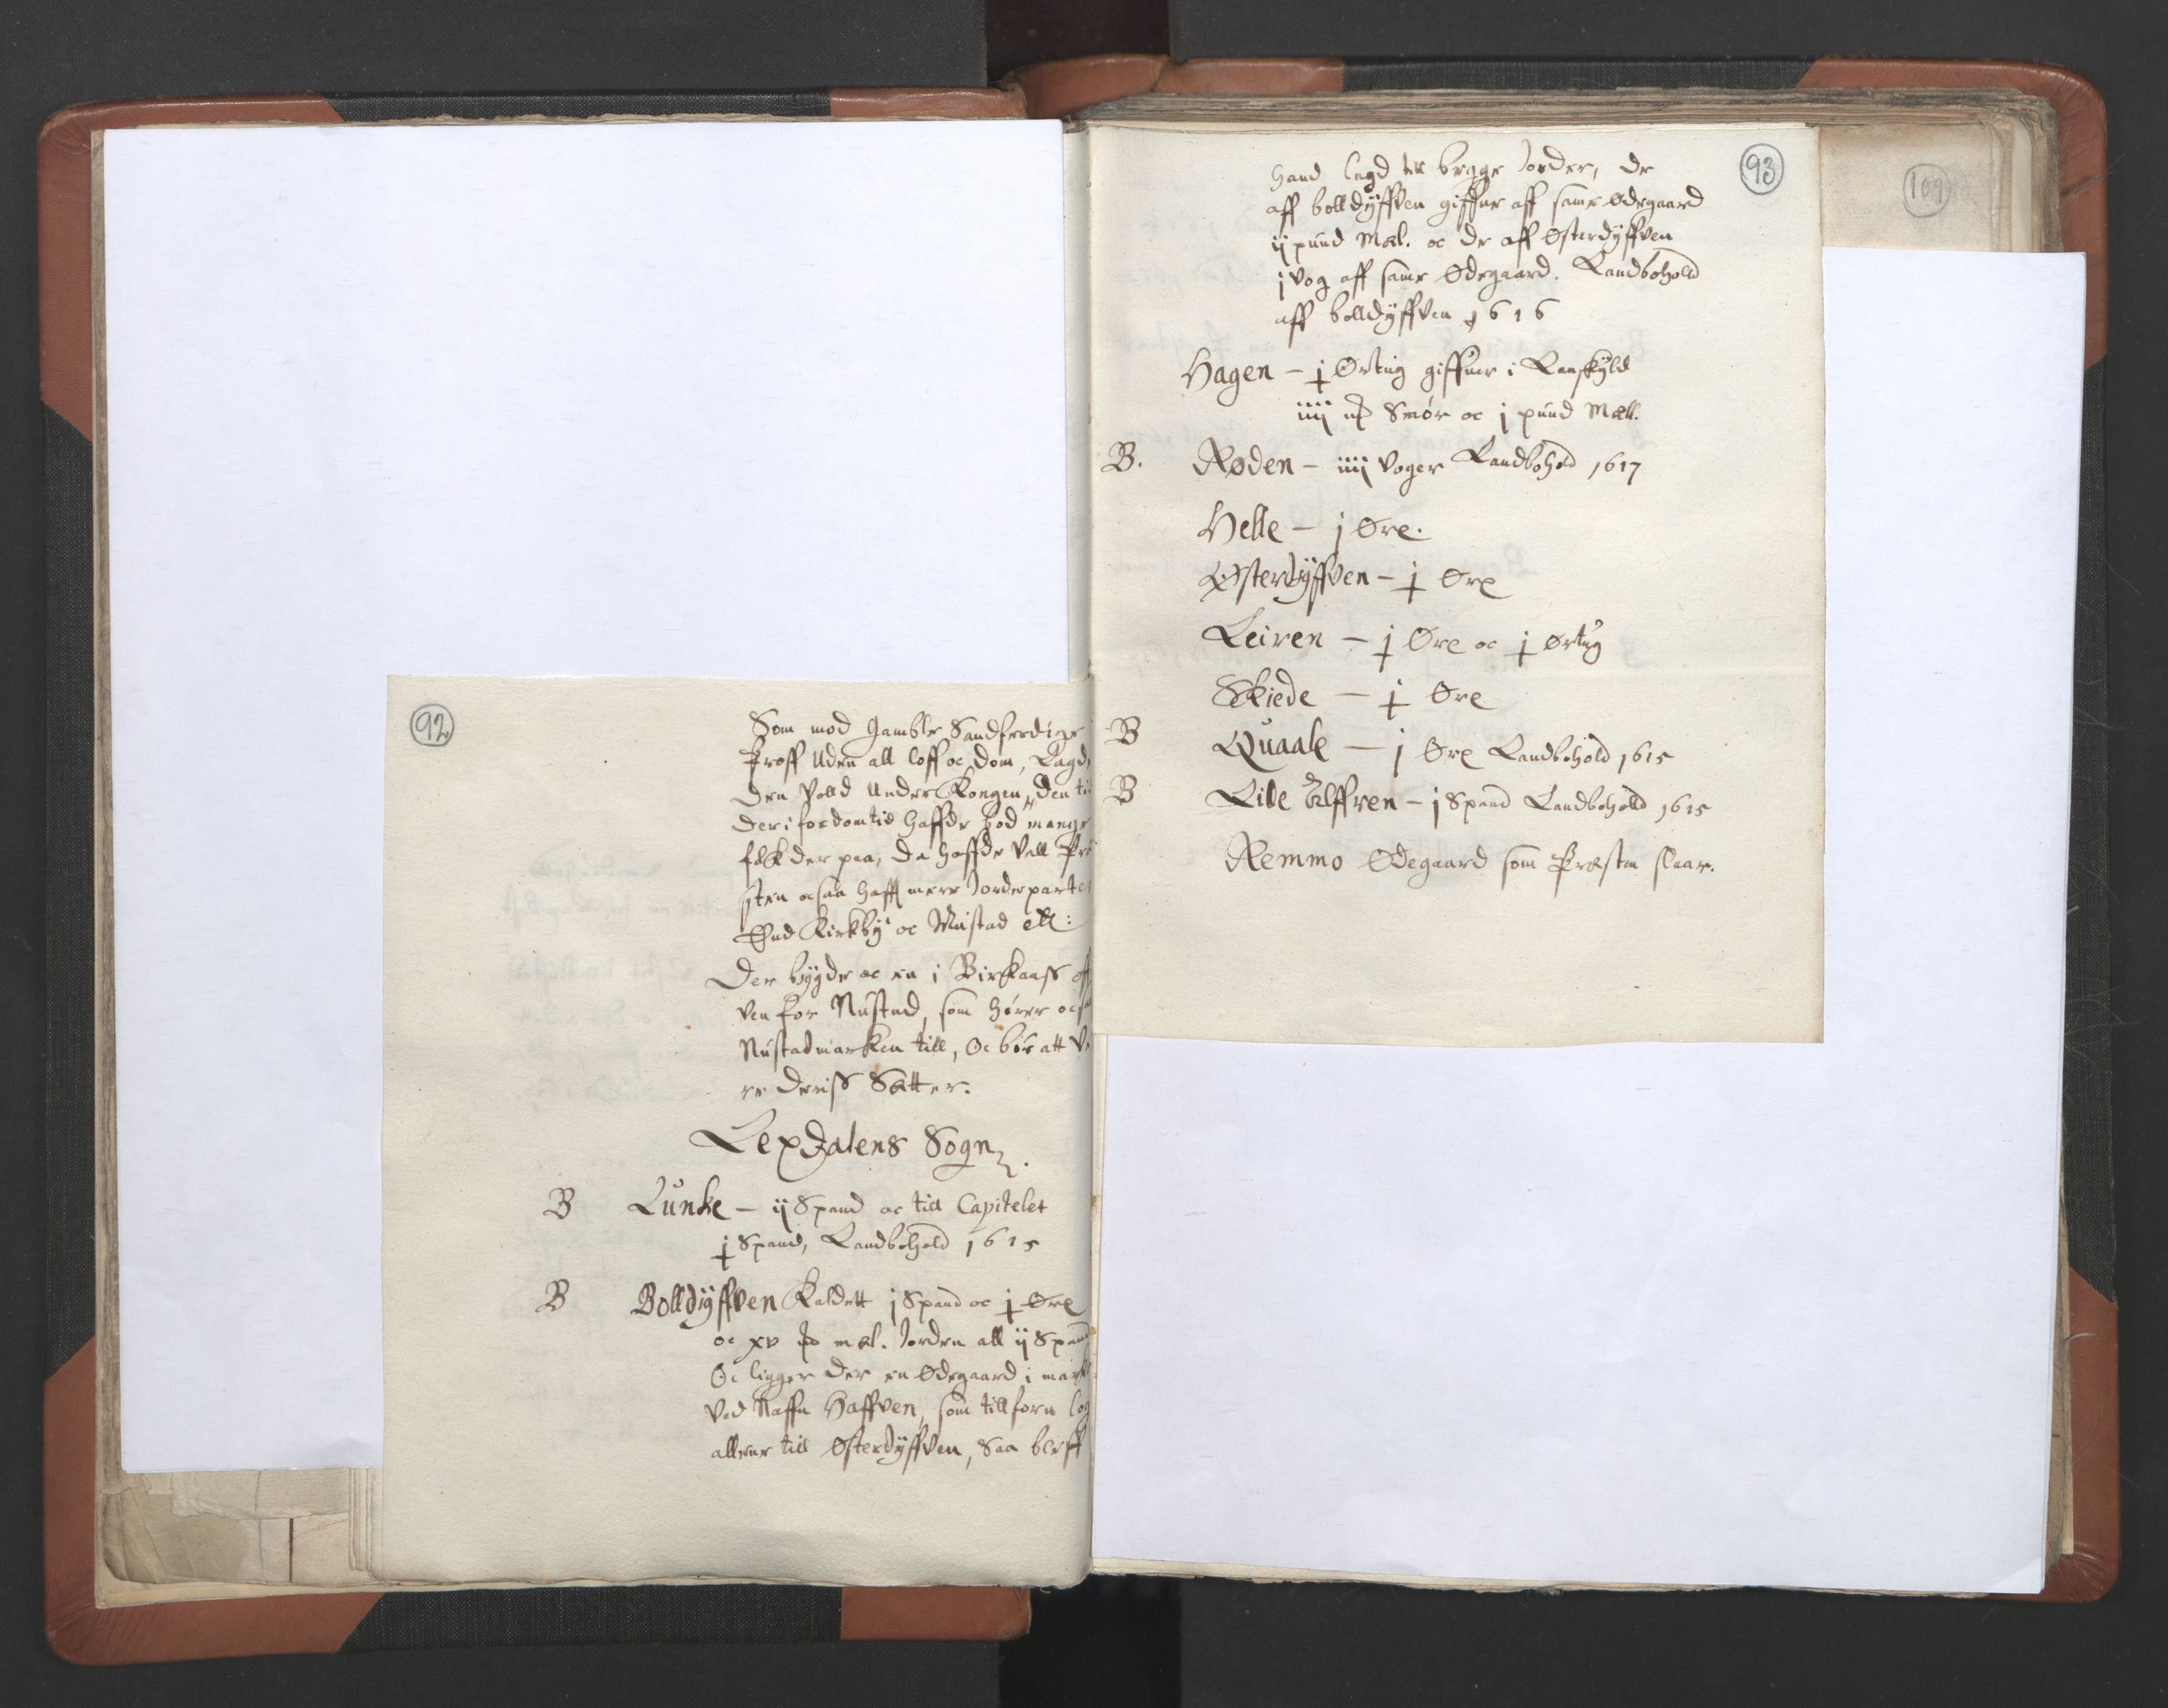 92
Som mod gamble Sandferdige
Proff Uden all loff oc Dom, Lagde
den Vold Under Kongen, den tid
der i fordom tid haffde bod mange
folk der paa, da haffde Vell Pre
sten ocsaa hafft mere Jordeparter
End Kirkby oc Mustad etc:
Der bygde oc en i Birkaass off
ven for Nustad, som hører ocsaa
Nustadmarken till, Oc bør att Ve
re deriss Sætter.
Lexdalens Sogn.
B Lunke - ij Spand oc till Capitelet
j Spand, Landbohold 1615
B Bolldyffven Kaldett j Spand oc j Øre
oc xv mæl. Jorden all ij Spand
Oc ligger der en Ødegaard i marken
Ved Naffn Haffven, som tillforn log
allene till Østerdyffven, Saa bleff
93
hand lagd till begge Jorder, de
aff bolldyffven giffver aff same Ødegaard
ij pund Mæl. oc de aff Østerdyffven
j Vog aff same Ødegaard. Landbohold
aff bolldyffven 1616
Hagen - j Ørtug giffver i Lanskyld
iiij Smør oc j pund Mæll.
B. Røden - iiij Voger Landbohold 1617
Helle - j Øre.
Østerdyffven - j Øre
Leiren - j Øre oc j Ørtug
Skiede - j Øre
B Quaale - j Øre Landbohold 1615
B Lile Ælffven - j Spand Landbohold 1615
Remmo Ødegaard som Præsten slaar.
109